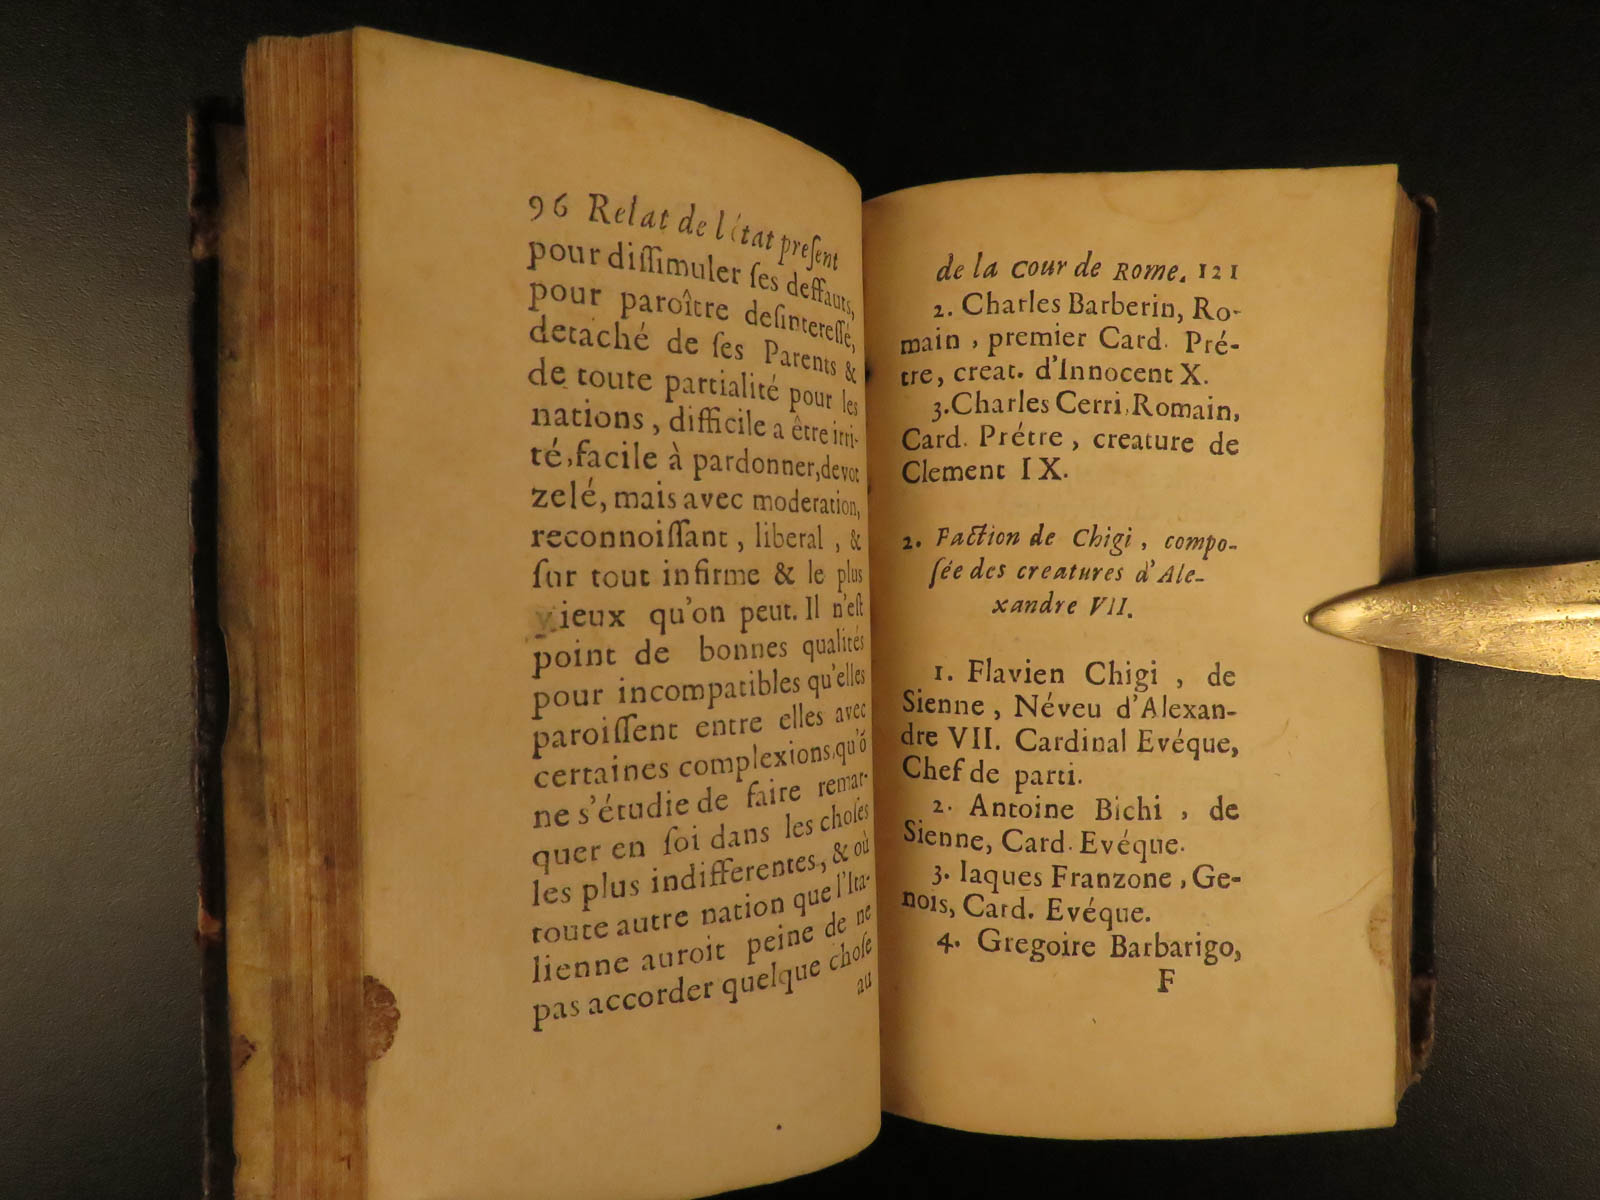 96 Relat de l'état preſent
pour diſſimuler ſes deffauts,
pour paroître deſintereſſé,
detaché de ſes Parents &
de toute partialité pour les
nations, difficile a être irri-
té, facile à pardonner, devot
zelé, mais avec moderation,
reconnoiſſant, liberal, &
ſur tout infirme & le plus
vieux qu'on peut. Il n'eſt
point de bonnes qualités
pour incompatibles qu'elles
paroiſſent entre elles avec
certaines complexions, qu'ō
ne s'étudie de faire remar-
quer en ſoi dans les choſes
les plus indifferentes, & où
toute autre nation que l'Ita-
lienne auroit peine de ne
pas accorder quelque choſe
au
de la Cour de Rome. 121
2. Charles Barberin, Ro-
main, premier Card. Pré-
tre, creat. d'Innocent X.
3. Charles Cerri, Romain,
Card. Prétre, creature de
Clement IX.
2. Faction de Chigi, compo-
ſée des creatures d'Ale-
xandre VII.
1. Flavien Chigi, de
Sienne, Néveu d'Alexan-
dre VII. Cardinal Evéque,
Chef de parti.
2. Antoine Bichi, de
Sienne, Card. Evéque.
3. Iaques Franzone, Ge-
nois, Card. Evéque.
4. Gregoire Barbarigo,
F